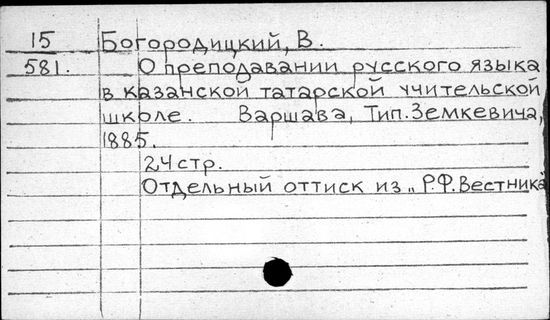 15 Богородицкий, В.
581. О преподавании русского языка
в казанской татарской учительской
школе. Варшава, Тип. Земкевича,
1885.
24 стр.
Отдельный оттиск из „Р.Ф.Вестника"